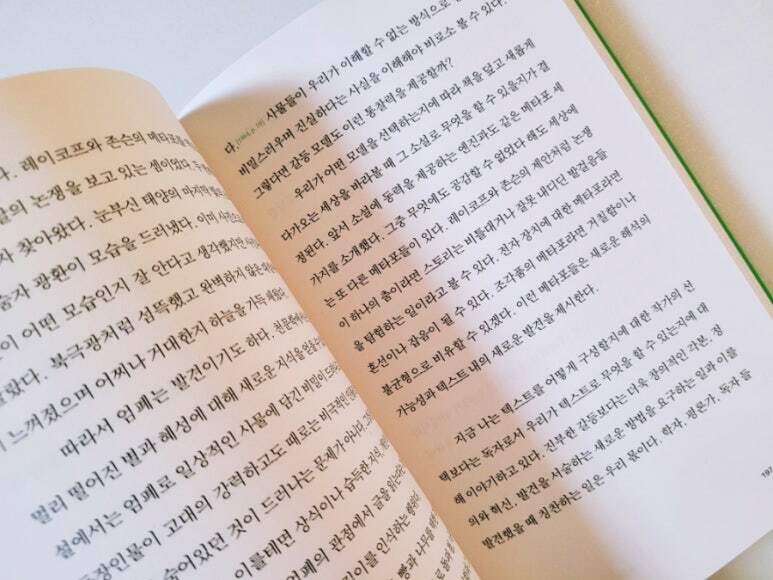 다. 레이코프와 존슨의 메타포를
의 논쟁을 보고 있는 셈이었다.
자 찾아왔다. 눈부신 태양의 마지막
숨자 광환이 모습을 드러냈다. 이미
이 어떤 모습인지 잘 안다고 생각했지만
랐다. 북극광처럼 섬뜩했고 완벽하지 않은
이 느껴졌으며 어찌나 거대한지 하늘을 가득 채웠다.
따라서 엄폐는 발견이기도 하다. 천문학에서
멀리 떨어진 별과 혜성에 대해 새로운 지식을 얻을 수
설에서는 엄폐로 일상적인 사물에 담긴 비밀이 드러
등장인물이 고대의 강력하고도 때로는 비극적인
숨어있던 것이 드러나는 문제가 아니다.
이를테면 상식이나 습득한 지식,
엄폐의 관점에서 글을 읽는다
이를 인식하는
빵과 나무를
사물들이 우리가 이해할 수 없는 방식으로
비밀스러우며 진실하다는 사실을 이해해야 비로소 볼 수 있다.
다.[1984, p. 19]
그렇다면 갈등 모델도 이런 통찰력을 제공할까?
우리가 어떤 모델을 선택하는지에 따라 책을 덮고 새롭게
다가오는 세상을 바라볼 때 그 소설로 무엇을 할 수 있을지가 결
정된다. 앞서 소설에 동력을 제공하는 엔진과도 같은 메타포 세
가지를 소개했다. 그중 무엇에도 공감할 수 없었다 해도 세상에
는 또 다른 메타포들이 있다. 레이코프와 존슨의 제안처럼 논쟁
이 하나의 춤이라면 스토리는 비틀대거나 잘못 내디딘 발걸음들
을 탐험하는 일이라고 볼 수 있다. 전자 장치에 대한 메타포라면
혼선이나 잡음이 될 수 있다. 조각품의 메타포라면 거칠함이나
불균형으로 비유할 수 있겠다. 이런 메타포들은 새로운 해석의
가능성과 텍스트 내의 새로운 발견을 제시한다.
지금 나는 텍스트를 어떻게 구성할지에 대한 작가의 선
택보다는 독자로서 우리가 텍스트로 무엇을 할 수 있는지에 대
해 이야기하고 있다. 진부한 갈등보다는 더욱 창의적인 각본, 정
의와 혁신, 발견을 서술하는 새로운 방법을 요구하는 일과 이를
발견했을 때 칭찬하는 일은 우리 몫이다. 학자, 평론가, 독자 들